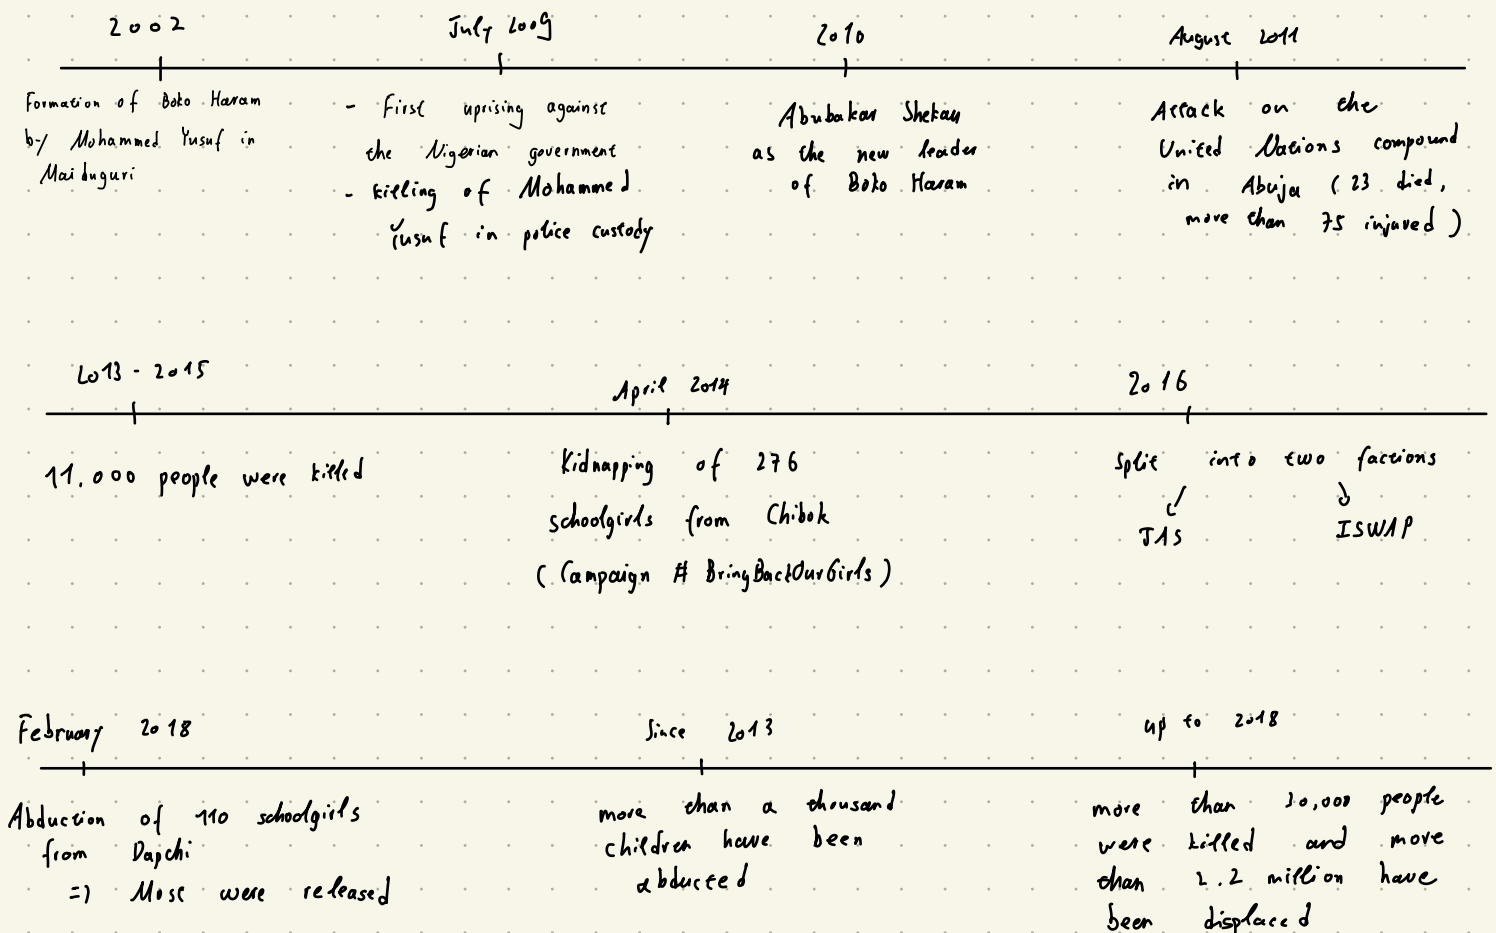 2002
July 2009
2010
August 2011
Formation of Boko Haram
by Mohammed Yusuf in
Maiduguri
- First uprising against
the Nigerian government
- killing of Mohammed
Yusuf in police custody
Abubakar Shekau
as the new leader
of Boko Haram
Attack on the
United Nations compound
in Abuja (23 died,
more than 75 injured)
2013 - 2015
April 2014
2016
11.000 people were killed
Kidnapping of 276
schoolgirls from Chibok
(Campaign # BringBackOurGirls)
Split into two factions
JAS
ISWAP
February 2018
Since 2013
up to 2018
Abduction of 110 schoolgirls
from Dapchi
=) Most were released
more than a thousand
children have been
abducted
more than people
were killed and more
than 2.2 million have
been displaced